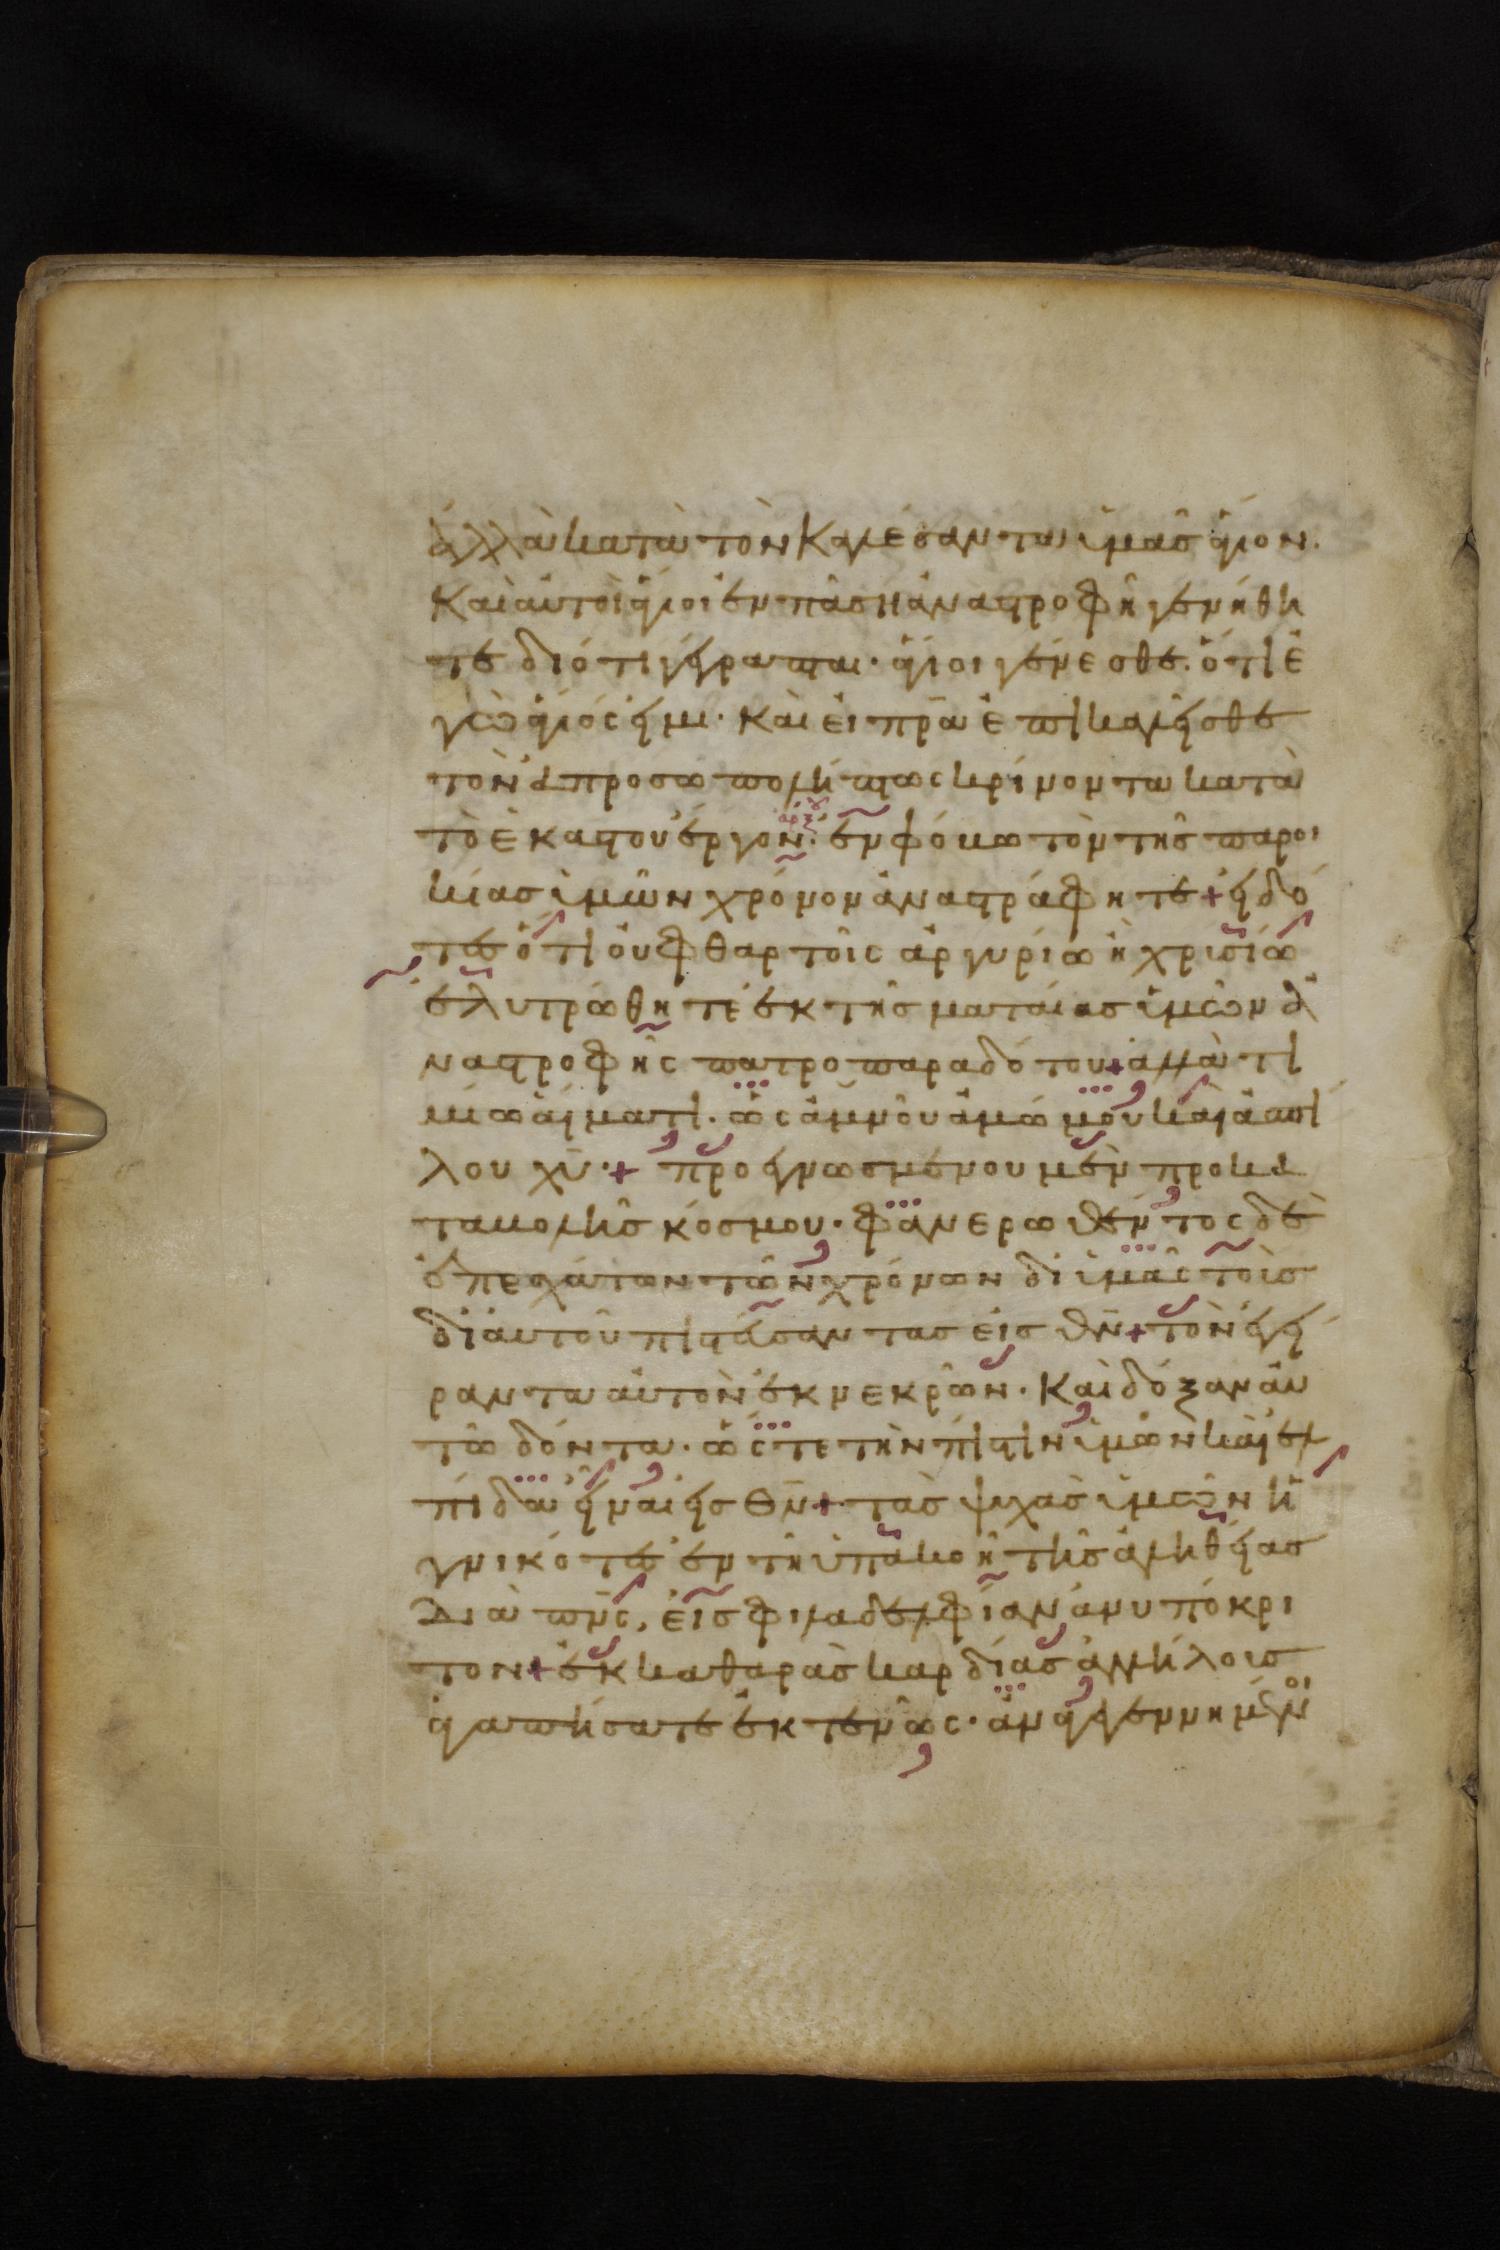 ἀλλὰ κατὰ τὸν καλέσαντα ὑμᾶσ ἅγιον.
Καὶ αὐτοὶ ἅγιοι ἐν πάση ἀναστροφῆ γενήθη
τε διότι γέγραπται· ἅγιοι γένεσθε. ὅτι ἐ
γὼ ἅγιός ἡμι· καὶ εἰ πρ̅α ἐπικαλῆσθε
τὸν ἀπροσωπολήπτως κρίνοντα κατὰ
τὸ ἑκάστου ἔργον· ἐν φόκω τὸν τῆσ παροι
κίασ ἱμῶν χρόνον ἀναστράφητε + ἠδό
τε ὅτι οὐ φθαρτοῖς ἀργυρίω ἢ χρισίω
ἐλυτρώθητε ἐκ τῆσ ματαίασ ἱμῶν ἀ
ναστροφῆς πατροπαραδότου + ἀλλὰ τι
μίω αἵματι. ὡς ἀμνοῦ ἀμώμου καὶ ἀσπί
λου χ̅υ· + προεγνωσμένου μὲν πρὸ κα
ταβολῆσ κόσμου· φανερωθέντος δὲ
ἐπ εσχάτων τῶν χρόνων δι ἱμᾶς τοῖσ
δι αὐτοῦ πιστεύσαντασ εἰσ θ̅ν + τὸν ἐγεί
ραντα αὐτὸν ἐκ νεκρῶν. Καὶ δόξαν αὐ
τῶ δόντα. ὥςτε τὴν πίστιν ἱμῶν καὶ ἐλ
πίδα ἦναι ἠσ θ̅ν + τὰσ ψυχὰσ ἱμῶν ἡ
γνικότεσ ἐν τῆ ὑπακοῆ τῆσ ἀληθείασ
Διὰ π̅ν̅ς, εἰσ φιλαδελφίαν ἀνυπόκρι
τον + ἐκ καθαρᾶσ καρδίασ ἀλλήλοισ
ἀγαπήσατε ἐκτενῶς· ἀναγεγεννημένοι